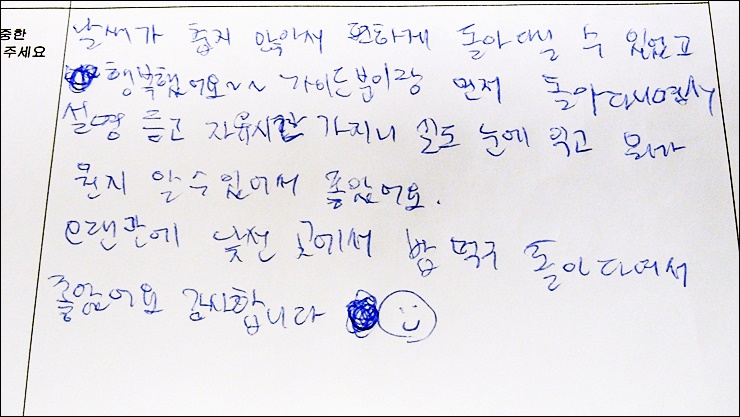 중한
주세요
날씨가 춥지 않아서 편하게 돌아다닐 수 있었고
행복했어요~~ 가이드분이랑 먼저 돌아다니면서
설명 듣고 자유시간 가지니 길도 눈에 익고 뭐가
뭔지 알 수 있어서 좋았어요.
오랜만에 낯선 곳에서 밥 먹구 돌아다녀서
좋았어요 감사합니다